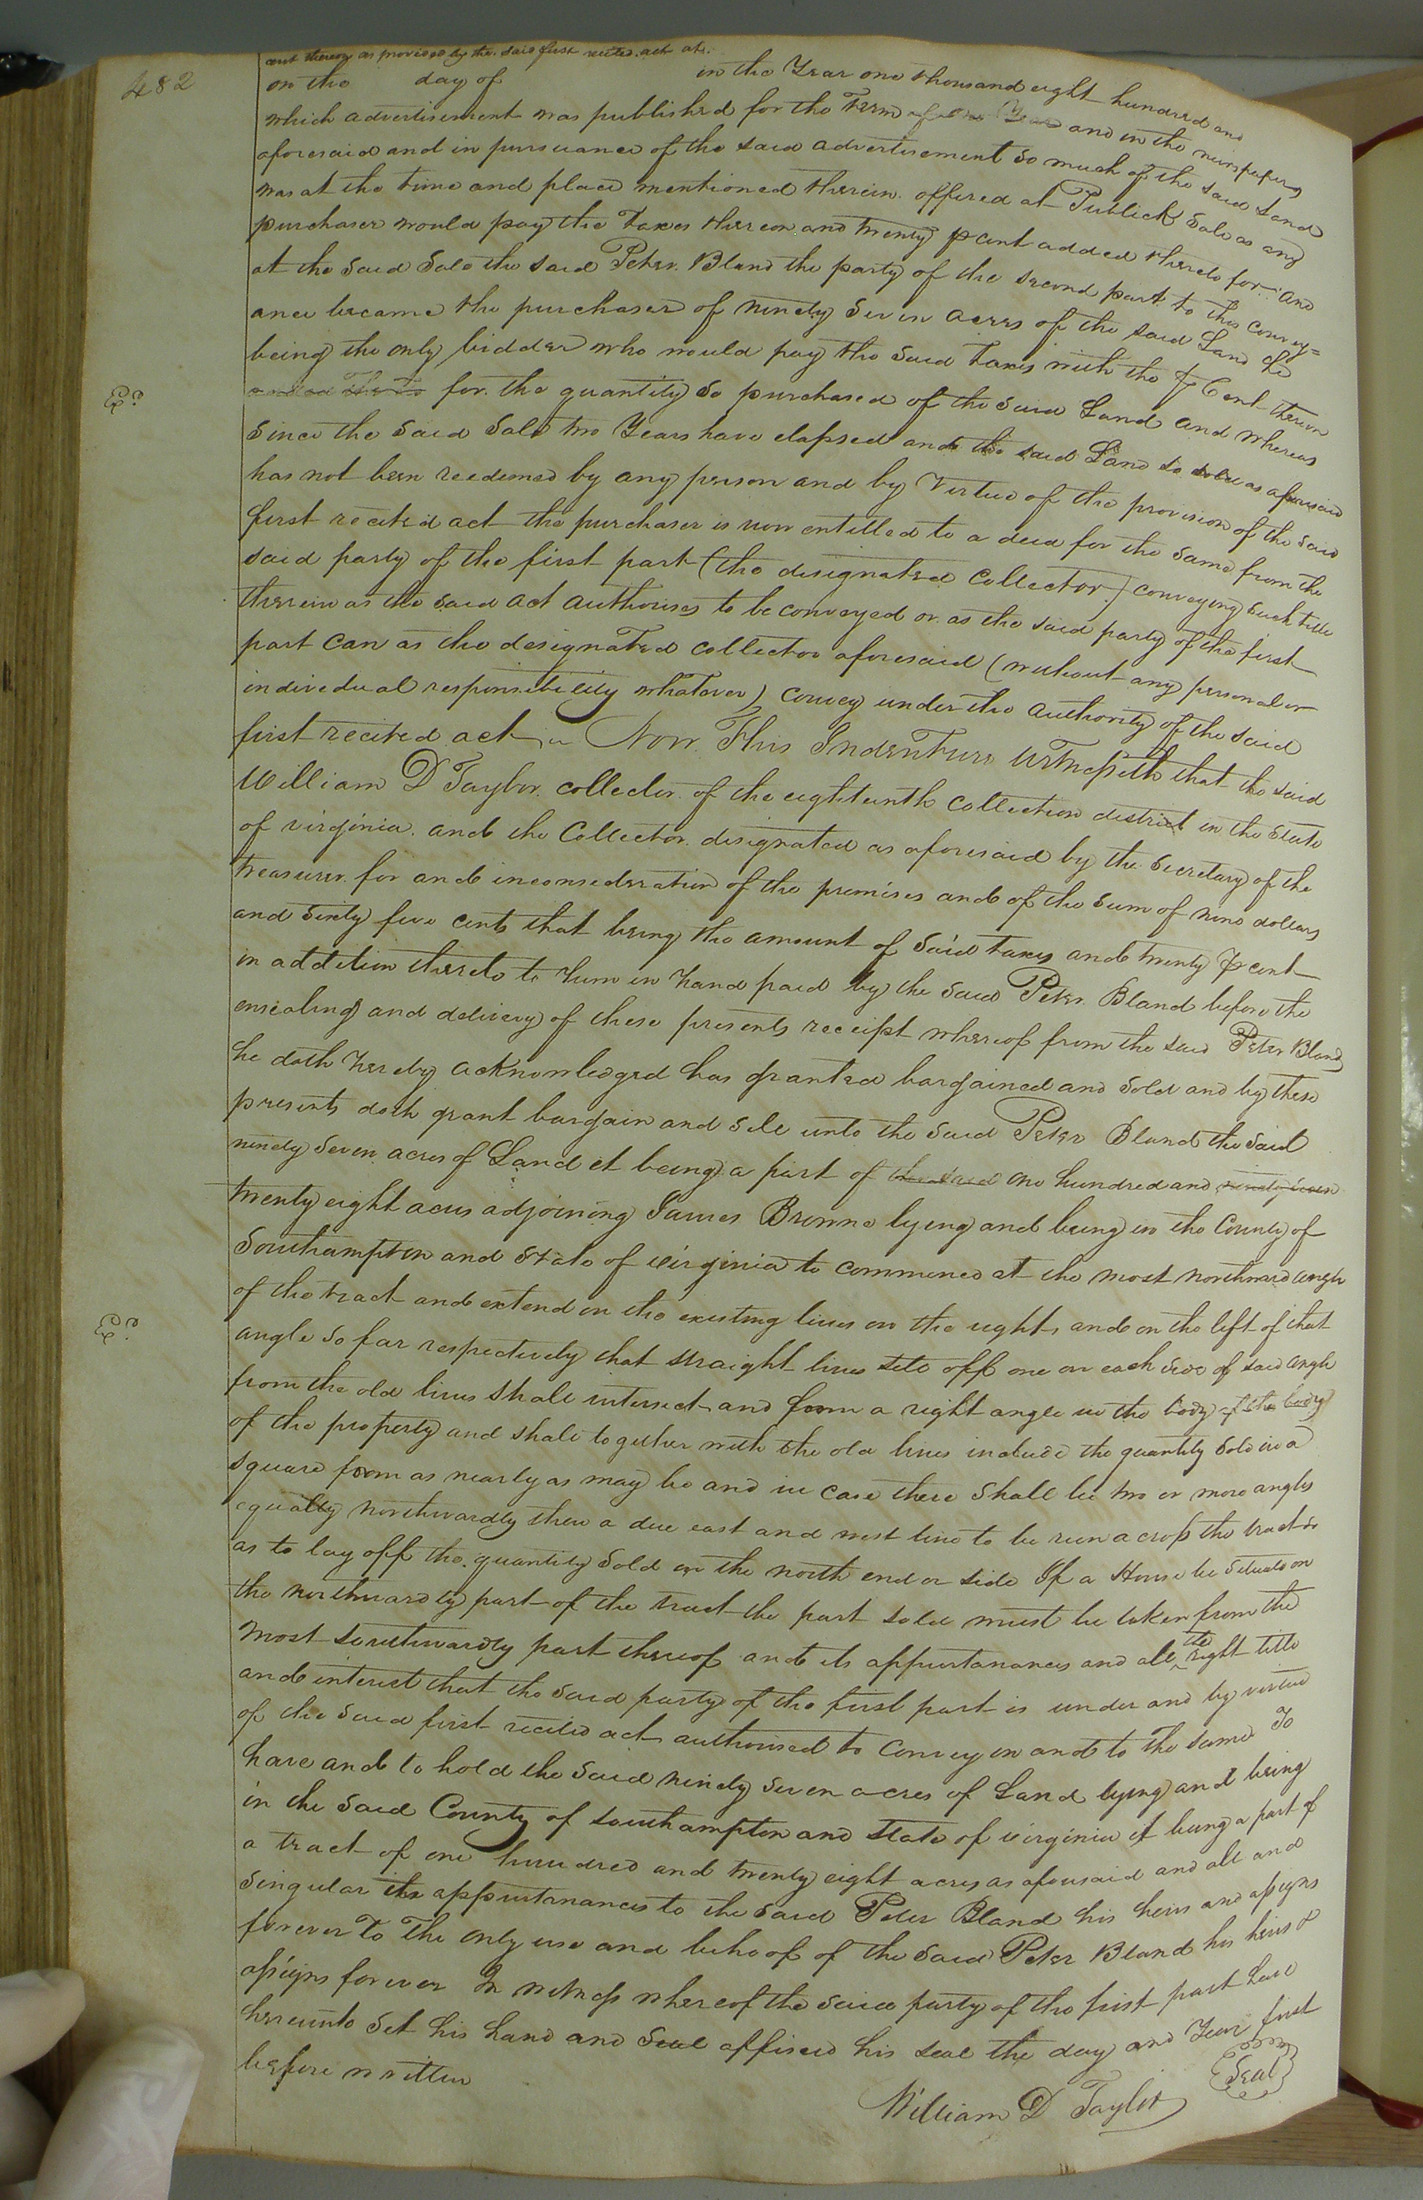 482
cent thereon as provided by the said first recited act at.
on the day of in the Year one thousand eight hundred and
which advertisement was published for the Term of one Year and in the newspapers
aforesaid and in pursuance of the said advertisement so much of the said Land
was at the time and place mentioned therein offered at Publick Sale as any
purchaser would pay the Taxes thereon and twenty p cent added thereto for: and
at the said Sale the said Peter Bland the party of the second part to this convey=
ance became the purchaser of ninety Seven acres of the said Land he
being the only bidder who would pay the said Taxes with the p Cent thereon
for the quantity so purchased of the said Land and whereas
Since the said Sale two Years have elapsed and the said Land so sold as aforesaid
has not been redeemed by any person and by Virtue of the provision of the said
first recited act the purchaser is now entitled to a deed for the same from the
said party of the first part (the designated Collector) conveying such title
therein as the said act authorises to be conveyed or as the said party of the first
part can as the designated collector aforesaid (without any personal or
individual responsibility whatever) convey under the authority of the said
first recited act Now This Indenture Witnesseth that the said
William D Taylor collector of the eighteenth collection district in the State
of virginia and the Collector designated as aforesaid by the Secretary of the
treasurer for and in consideration of the premises and of the sum of nine dollars
and Sixty five cents that being the amount of said taxes and twenty p cent
in addition thereto to him in hand paid by the said Peter Bland before the
ensealing and delivery of these presents receipt whereof from the said Peter Bland
he doth hereby acknowledged has granted bargained and sold and by these
presents doth grant bargain and sell unto the said Peter Bland the said
ninety Seven acres of Land it being a part of one hundred and ninety seven
twenty eight acres adjoining James Browne lying and being in the County of
Southampton and State of virginia to commence at the most northward angle
of the tract and extend on the existing lines on the right and on the left of that
angle so far respectively that straight lines sett off one on each side of said angle
from the old lines shall intersect and form a right angle in the body of the body
of the property and shall together with the old lines include the quantity sold in a
square form as nearly as may be and in case there shall be two or more angles
equally northwardly then a due east and west line to be run across the tract so
as to lay off the quantity sold on the north end or side If a House be Situate on
the northwardly part of the tract the part sold must be taken from the
most southwardly part thereof and its appurtanances and all the right title
and interest that the said party of the first part is under and by virtue
of the said first recited act authorised to convey in and to the same To
have and to hold the said ninety seven acres of Land lying and being
in the said County of Southampton and State of virginia it being a part of
a tract of one hundred and twenty eight acres as aforesaid and all and
Singular its appurtenances to the said Peter Bland his heirs and assigns
forever To The only use and behoof of the said Peter Bland his heirs &
assigns forever In witness whereof the said party of the first part have
hereunto Set his hand and seal affixed his seal the day and Year first
before written
William D Taylor Seal